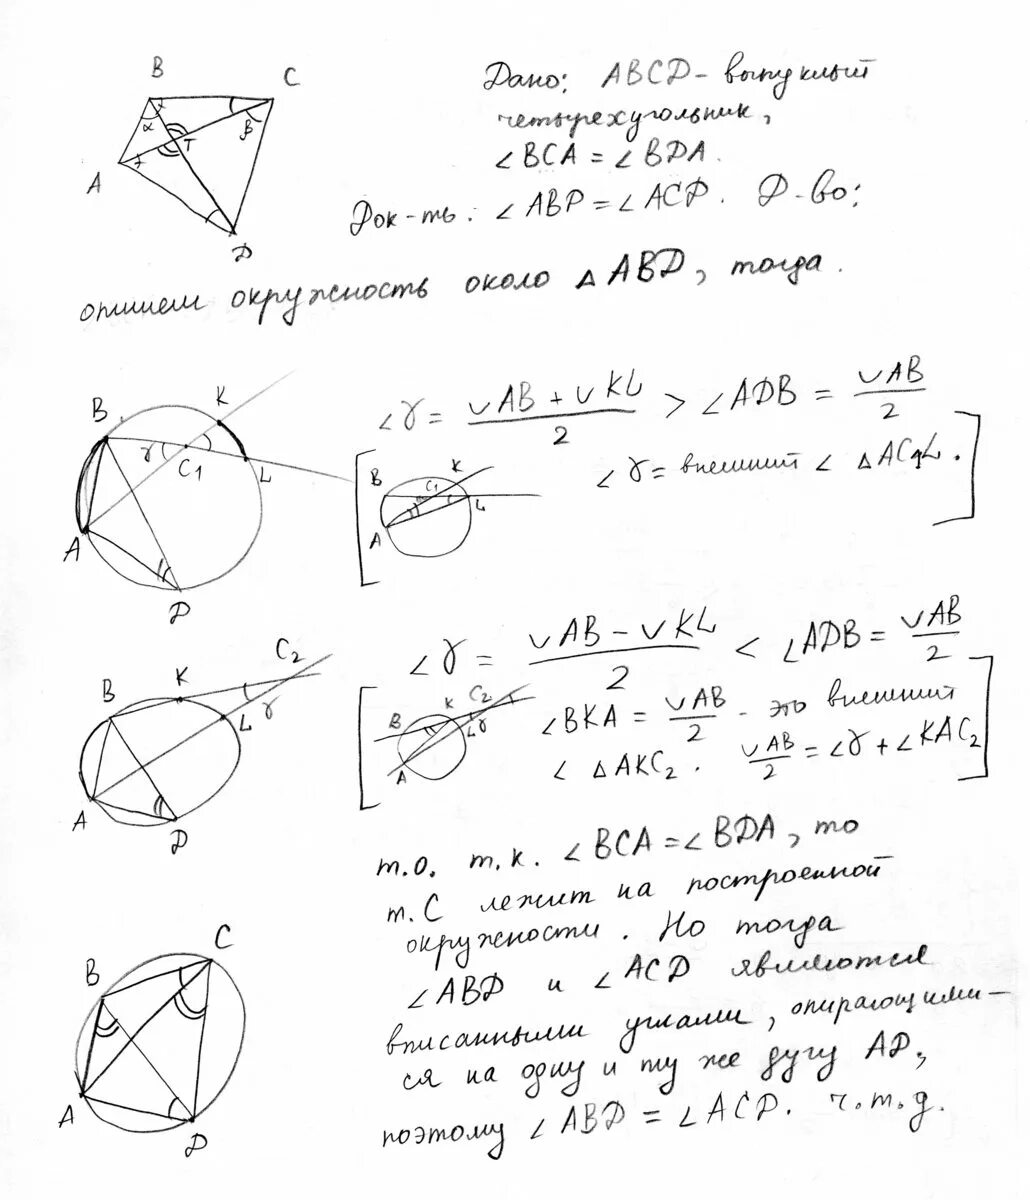 B
C
α
T
β
A
D
Дано: ABCD - выпуклый
четырехугольник,
∠BCA = ∠BDA.
Док-ть: ∠ABD = ∠ACD. Д-во:
опишем окружность около △ABD, тогда.
B
K
γ
C1
L
A
D
∠γ = (∪AB + ∪KL)/2 > ∠ADB = ∪AB/2
B
K
C1
L
A
∠γ = внешний ∠ △AC1L.
C2
B
K
γ
L
A
D
∠γ = (∪AB - ∪KL)/2 < ∠ADB = ∪AB/2
B
K
C2
L
γ
A
∠BKA = ∪AB/2 - это внешний
∠ △AKC2. ∪AB/2 = ∠γ + ∠KAC2
т.о. т.к. ∠BCA = ∠BDA, то
т. C лежит на построенной
окружности. Но тогда
∠ABD и ∠ACD являются
вписанными углами, опирающими-
ся на одну и ту же дугу AD,
поэтому ∠ABD = ∠ACD. ч.т.д.
C
B
A
D